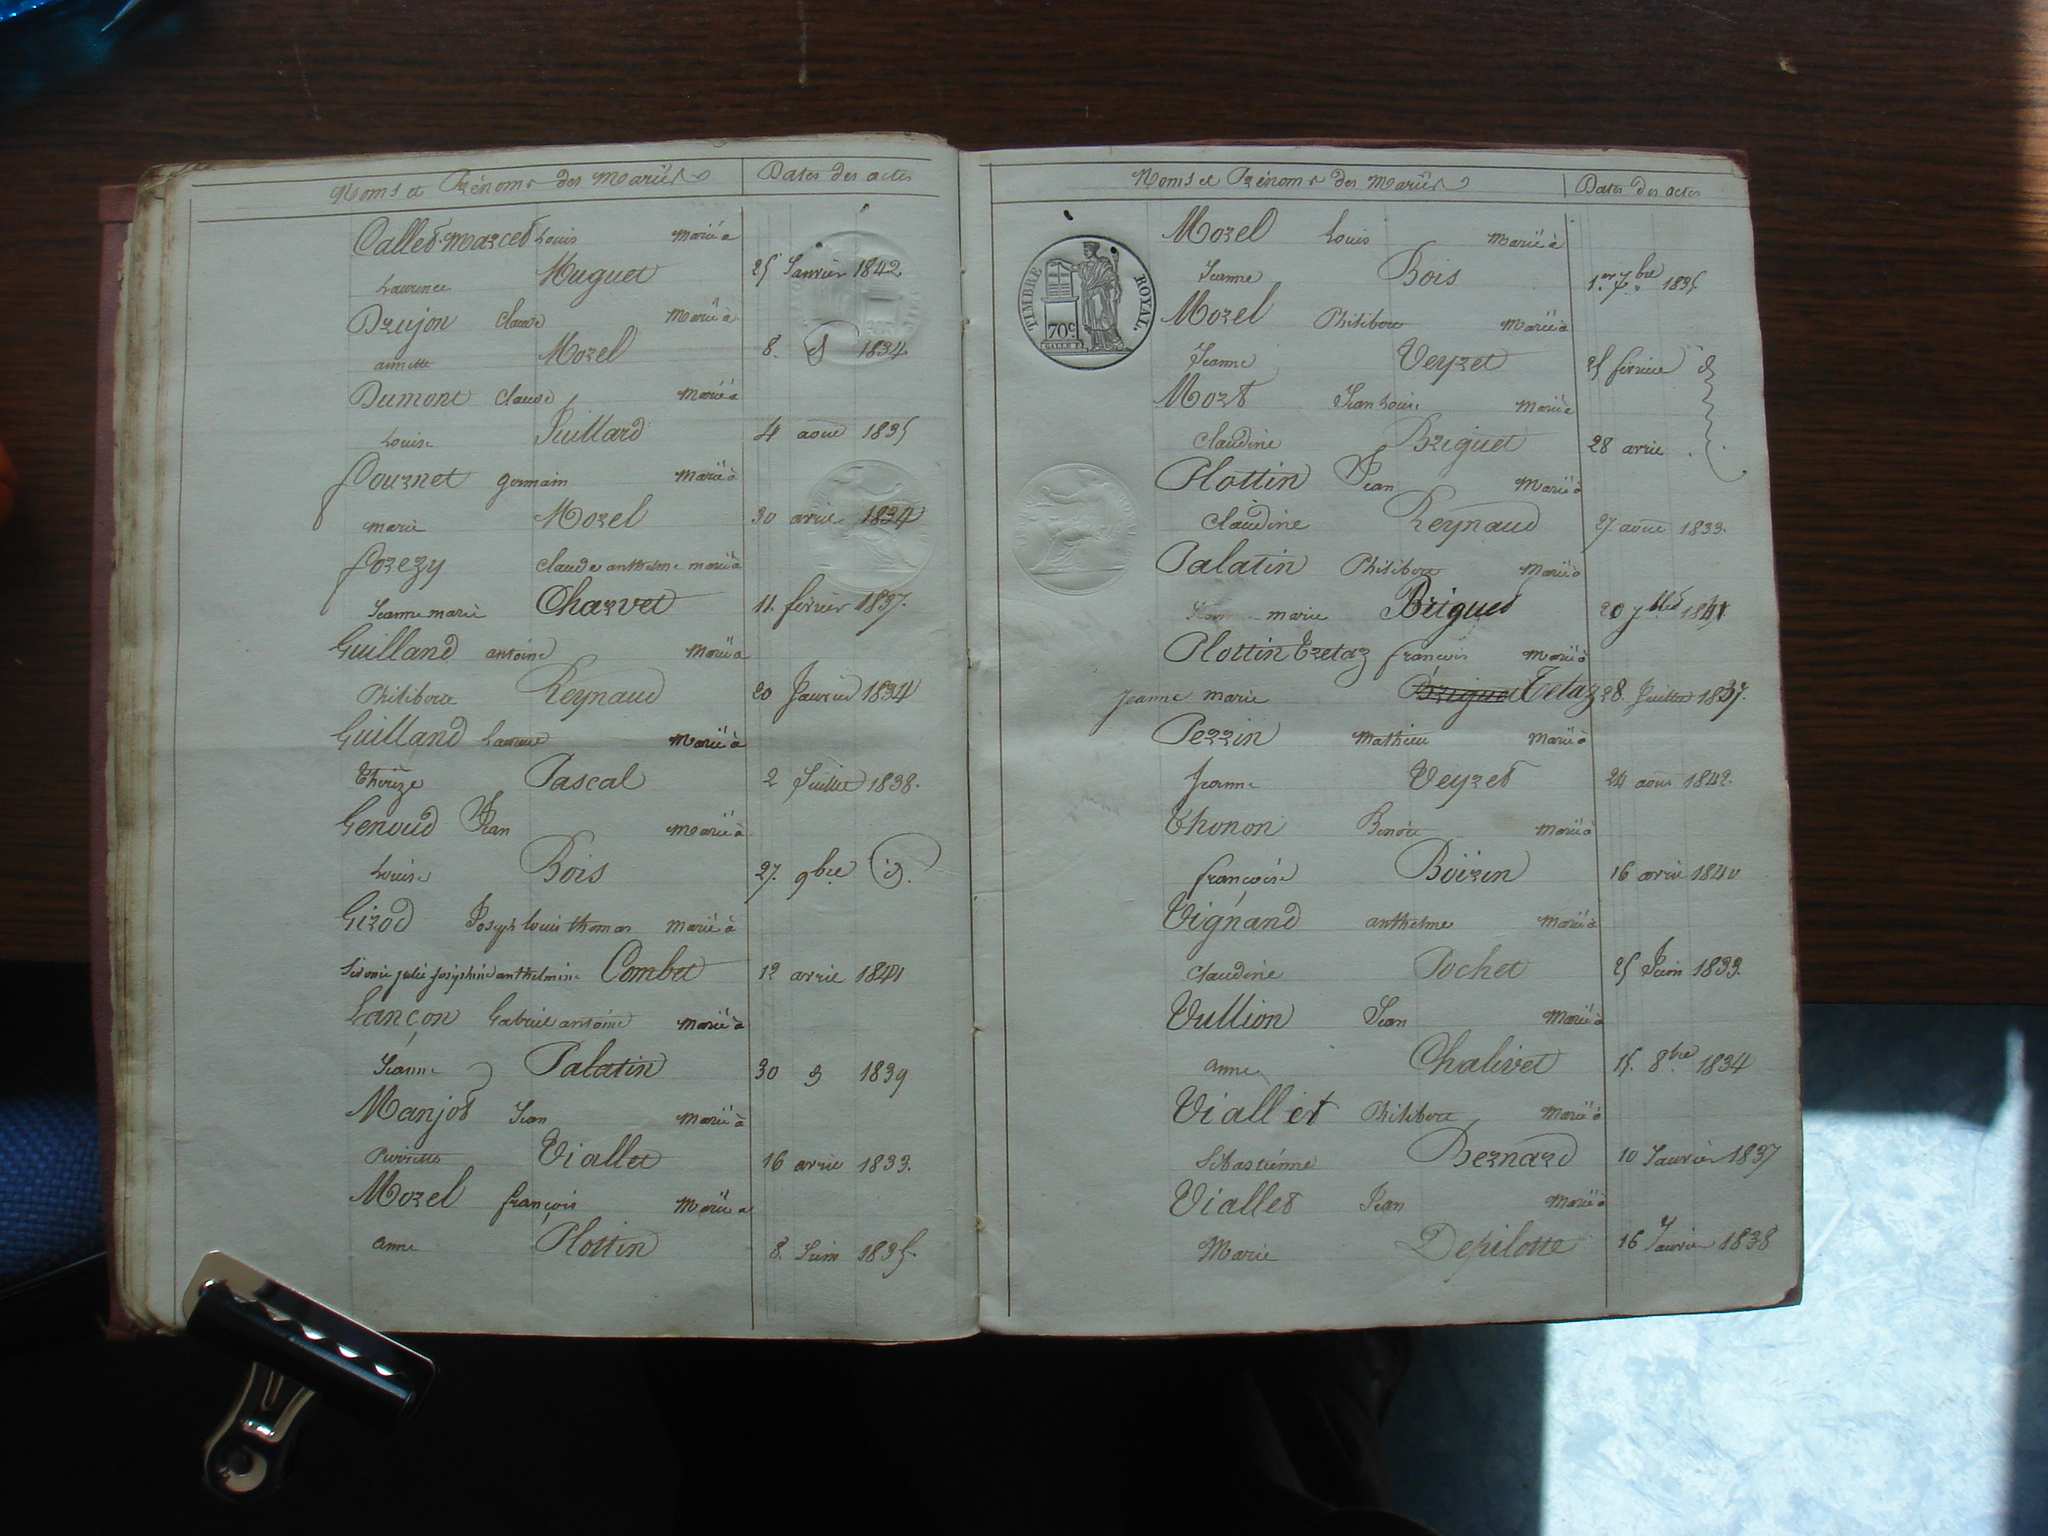 Noms et Prénoms des Mariés
Dates des actes
Callet-Marcet Louis Marié à
Laurence Muguet 25 Janvier 1842
Drujon Claude Marié à
annette Morel 8. d 1834
Dumont Claude Marié à
Louise Juillard 4 aout 1835
fournet germain Marié à
marie Morel 30 avril 1834
forezy Claude anthelme marié à
Jeanne marie Charvet 11. février 1837.
Guilland antoine Marié à
Philiberte Reynaud 20 Janvier 1834
Guilland Laurent Marié à
Thérèze Pascal 2 Juillet 1838.
Genoud Jean Marié à
Louise Bois 27. 9bre d.
Girod Joseph louis thomas Marié à
Sidonie julie joséphine anthelmine Combet 12 avril 1841
Lançon Gabriel antoine Marié à
Jeanne Palatin 30 d 1839
Manjot Jean Marié à
Viallet 16 avril 1833.
Morel françois Marié à
anne Plottin 8. Juin 1835.
Noms et Prénoms des Mariés
Dates des actes
TIMBRE ROYAL.
70c
Morel Louis Marié à
Jeanne Bois 1er 7bre 1835.
Morel Philibert Marié à
Jeanne Veyret 25 février d
Mort Jean Louis Marié à
Claudine Briguet 28 avril
Plottin Jean Marié à
Claudine Reynaud 27. aout 1833.
Palatin Philibert Marié à
marie Briguet 20 7bre 1841
Plottin Tretaz françois Marié à
Jeanne marie Briguet Tetaz 28. Juillet 1837.
Perrin Mathieu Marié à
Jeanne Veyret 24 aout 1842.
Thonon Benoit Marié à
françoise Boirin 16 avril 1840
Vignand anthelme Marié à
Claudine Pochet 25 Juin 1833.
Vullion Jean Marié à
anne Chalivet 15. 8bre 1834
Viallet Philibert Marié à
Sébastienne Bernard 10 Janvier 1837
Viallet Jean Marié à
Marie Depilotte 16 Janvier 1838